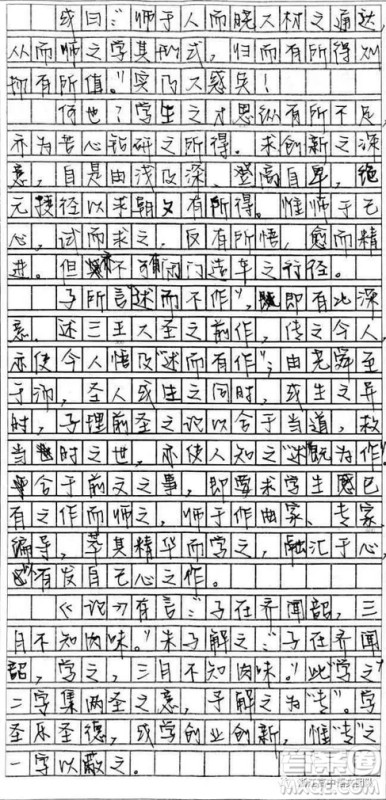 或曰："师于人而晓大材之通达，
从而师之学其形式，归而有所得知
所有所值。"实乃大惑矣！
何也？学生之才思纵有所不足，
亦为苦心钻研之所得。求创新之深
意，自是由浅及深、登高自卑，绝
无捷径以求朝夕有所得。惟师于己
心，试而求之，反有所悟，愈而精
进。但亦不可有闭门造车之行径。
子所言"述而不作"，即有此深
意。述三王大圣之前作，传之今人，
亦使今人悟及"述而有作"；由尧舜至
于汤，圣人或生之同时，或生之异
时，子理前圣之论以合于当道，救
当时之世，亦使人知之"述既为作"
合于前文之事，即要求学生感已
有之作而师之，师于作曲家、专家
编导，萃其精华而学之，融汇于心，
必有发自己心之作。
《论》有言："子在齐闻韶，三
月不知肉味。"朱子解之："子在齐闻
韶，学之，三月不知肉味。"此"学之"
二字集两圣之意，予解之为"专"。学
圣乐圣德，或学创业创新，惟"专"之
一字以蔽之。
答案圈
MXQE.COM